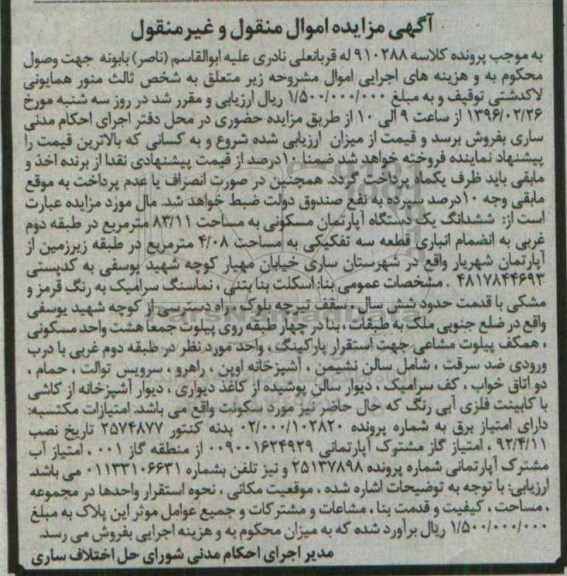 آگهی مزایده اموال منقول و غیرمنقول
به موجب پرونده کلاسه ۹۱۰۲۸۸ له قربانعلی نادری علیه ابوالقاسم (ناصر) بابونه جهت وصول
محکوم به و هزینه های اجرایی اموال مشروحه زیر متعلق به شخص ثالث منور همایونی
لاکدشتی توقیف و به مبلغ ۱/۵۰۰/۰۰۰/۰۰۰ ریال ارزیابی و مقرر شد در روز سه شنبه مورخ
۱۳۹۶/۰۲/۲۶ از ساعت ۹ الی ۱۰ از طریق مزایده حضوری در محل دفتر اجرای احکام مدنی
ساری بفروش برسد و قیمت از میزان ارزیابی شده شروع و به کسانی که بالاترین قیمت را
پیشنهاد نماینده فروخته خواهد شد ضمنا ۱۰درصد از قیمت پیشنهادی نقدا از برنده اخذ و
مابقی باید ظرف یکماه پرداخت گردد. همچنین در صورت انصراف یا عدم پرداخت به موقع
مابقی وجه ۱۰درصد سپرده به نفع صندوق دولت ضبط خواهد شد. مال مورد مزایده عبارت
است از: ششدانگ یک دستگاه آپارتمان مسکونی به مساحت ۸۳/۱۱ مترمربع در طبقه دوم
غربی به انضمام انباری قطعه سه تفکیکی به مساحت ۴/۰۸ مترمربع در طبقه زیرزمین از
آپارتمان شهریار واقع در شهرستان ساری خیابان مهیار کوچه شهید یوسفی به کدپستی
۴۸۱۷۸۴۴۶۹۳ . مشخصات عمومی بنا: اسکلت بنا بتنی ، نماسنگ سرامیک به رنگ قرمز و
مشکی با قدمت حدود شش سال ، سقف تیرچه بلوک ، راه دسترسی از کوچه شهید یوسفی
واقع در ضلع جنوبی ملک به طبقات ، بنا در چهار طبقه روی پیلوت جمعا هشت واحد مسکونی
، همکف پیلوت مشاعی جهت استقرار پارکینگ ، واحد مورد نظر در طبقه دوم غربی با درب
ورودی ضد سرقت ، شامل سالن نشیمن ، آشپزخانه اوپن ، راهرو ، سرویس توالت ، حمام ،
دو اتاق خواب ، کف سرامیک ، دیوار سالن پوشیده از کاغذ دیواری ، دیوار آشپزخانه از کاشی
با کابینت فلزی آبی رنگ که حال حاضر نیز مورد سکونت واقع می باشد. امتیازات مکتسبه:
دارای امتیاز برق به شماره پرونده ۰۲/۰۰۰/۱۰۲۸۲۰ بدنه کنتور ۲۵۷۴۸۷۷ تاریخ نصب
۹۲/۴/۱۱ ، امتیاز گاز مشترک آپارتمانی ۰۰۹۰۰۱۶۲۴۹۲۹ از منطقه گاز ۰۰۱ ، امتیاز آب
مشترک آپارتمانی شماره پرونده ۲۵۱۳۷۸۹۸ و نیز تلفن بشماره ۰۱۱۳۳۱۰۶۶۳۱ می باشد.
ارزیابی: با توجه به توضیحات اشاره شده ، موقعیت مکانی ، نحوه استقرار واحدها در مجموعه
، مساحت ، کیفیت و قدمت بنا ، مشاعات و مشترکات و جمیع عوامل موثر این پلاک به مبلغ
۱/۵۰۰/۰۰۰/۰۰۰ ریال برآورد شده که به میزان محکوم به و هزینه اجرایی بفروش می رسد.
مدیر اجرای احکام مدنی شورای حل اختلاف ساری